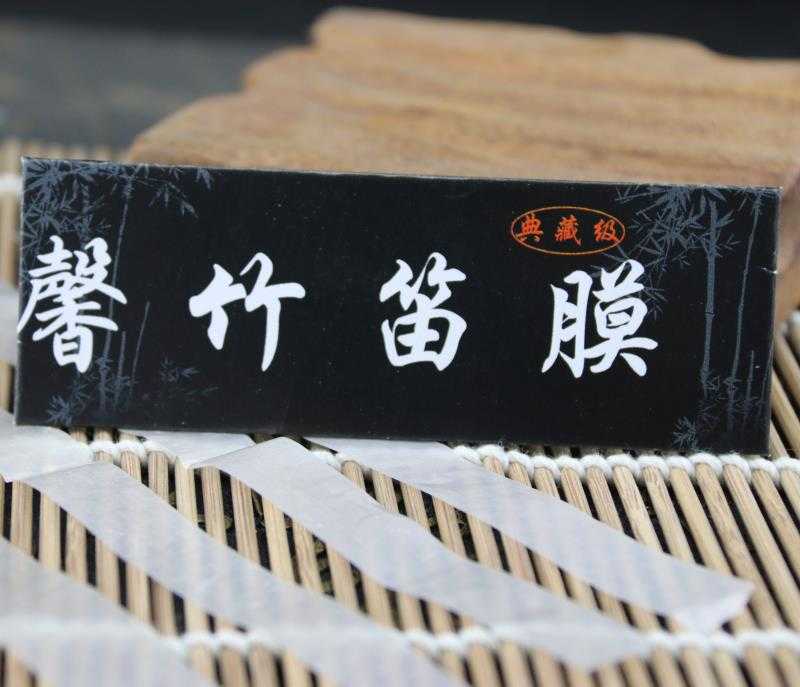 典藏级
馨竹笛膜